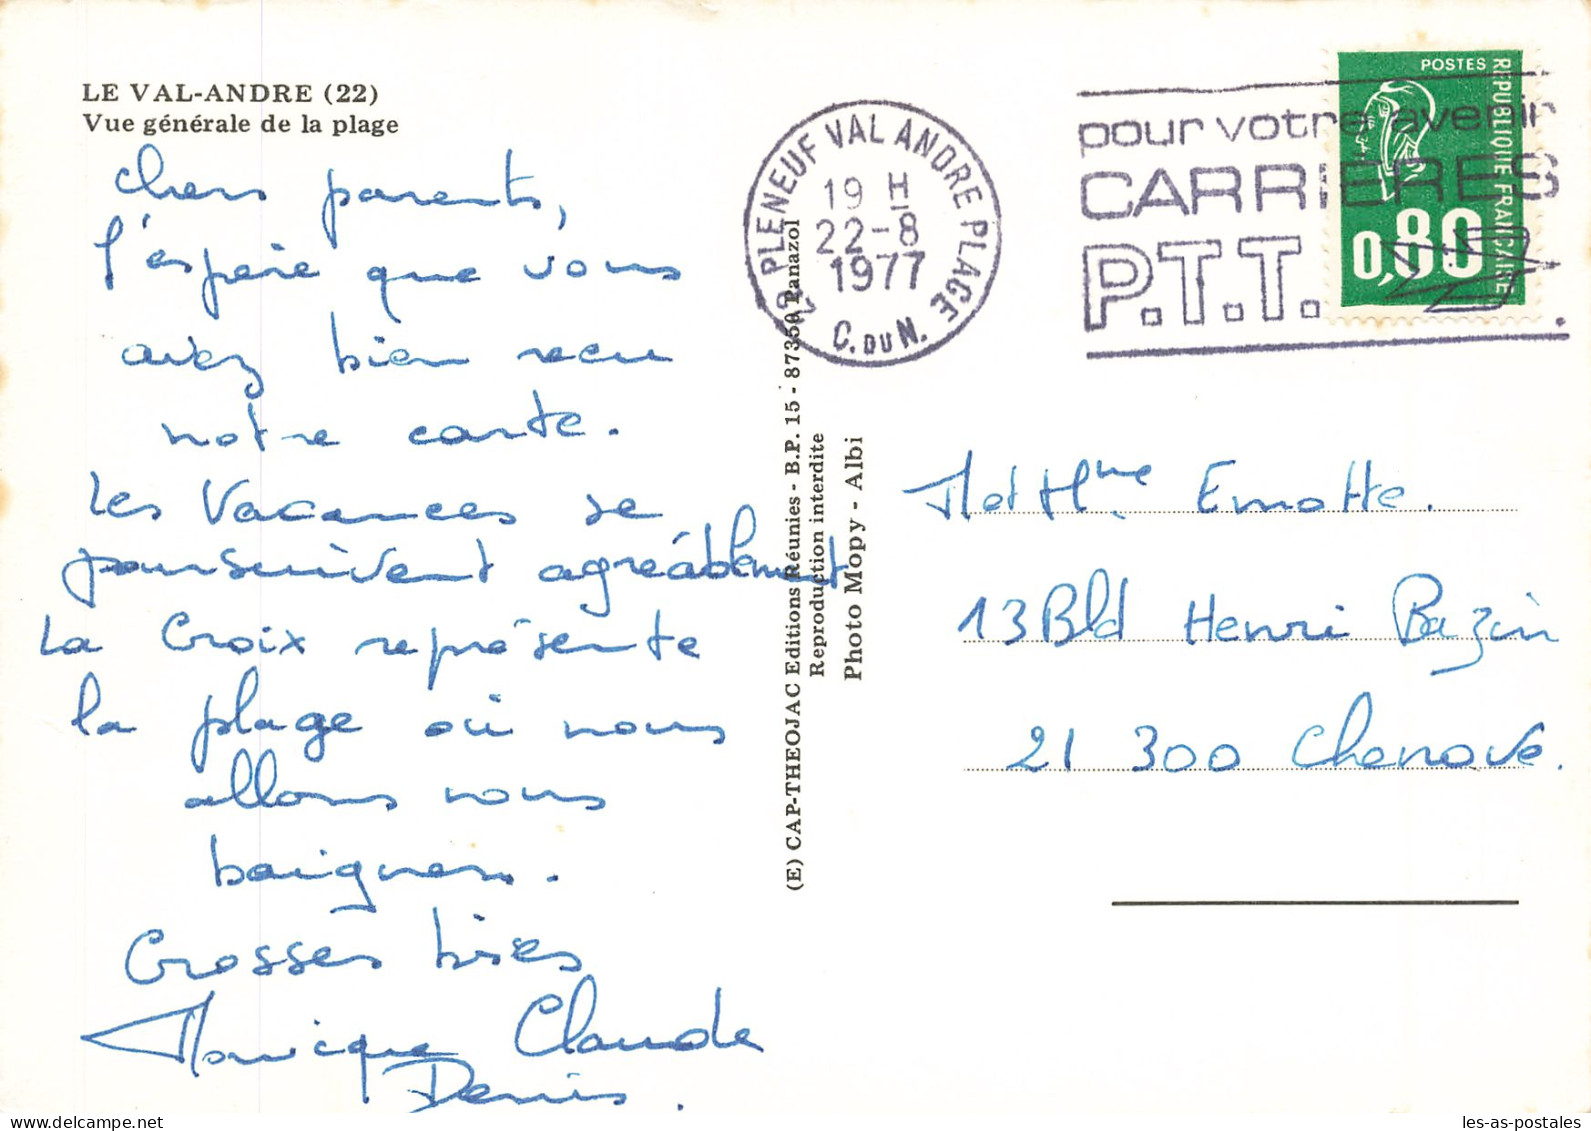 LE VAL-ANDRE (22)
Vue générale de la plage
Chers parents,
J'espère que vous
avez bien recu
notre carte.
Les Vacances se
poursuivent agréablement
La Croix représente
la plage où nous
allons nous
baigner.
Grosses bises
Monique Claude
Denis.
(E) CAP-THEOJAC Editions Réunies - B.P. 15 - 87350 Panazol
Reproduction interdite
Photo Mopy - Albi
22 PLENEUF VAL ANDRE PLAGE
19 H
22-8
1977
C. DU N.
pour votre avenir
CARRIERES
P.T.T.
POSTES
REPUBLIQUE FRANCAISE
0,80
M et Mme Emotte.
13 Bld Henri Bazin
21 300 Chenove.
les-as-postales